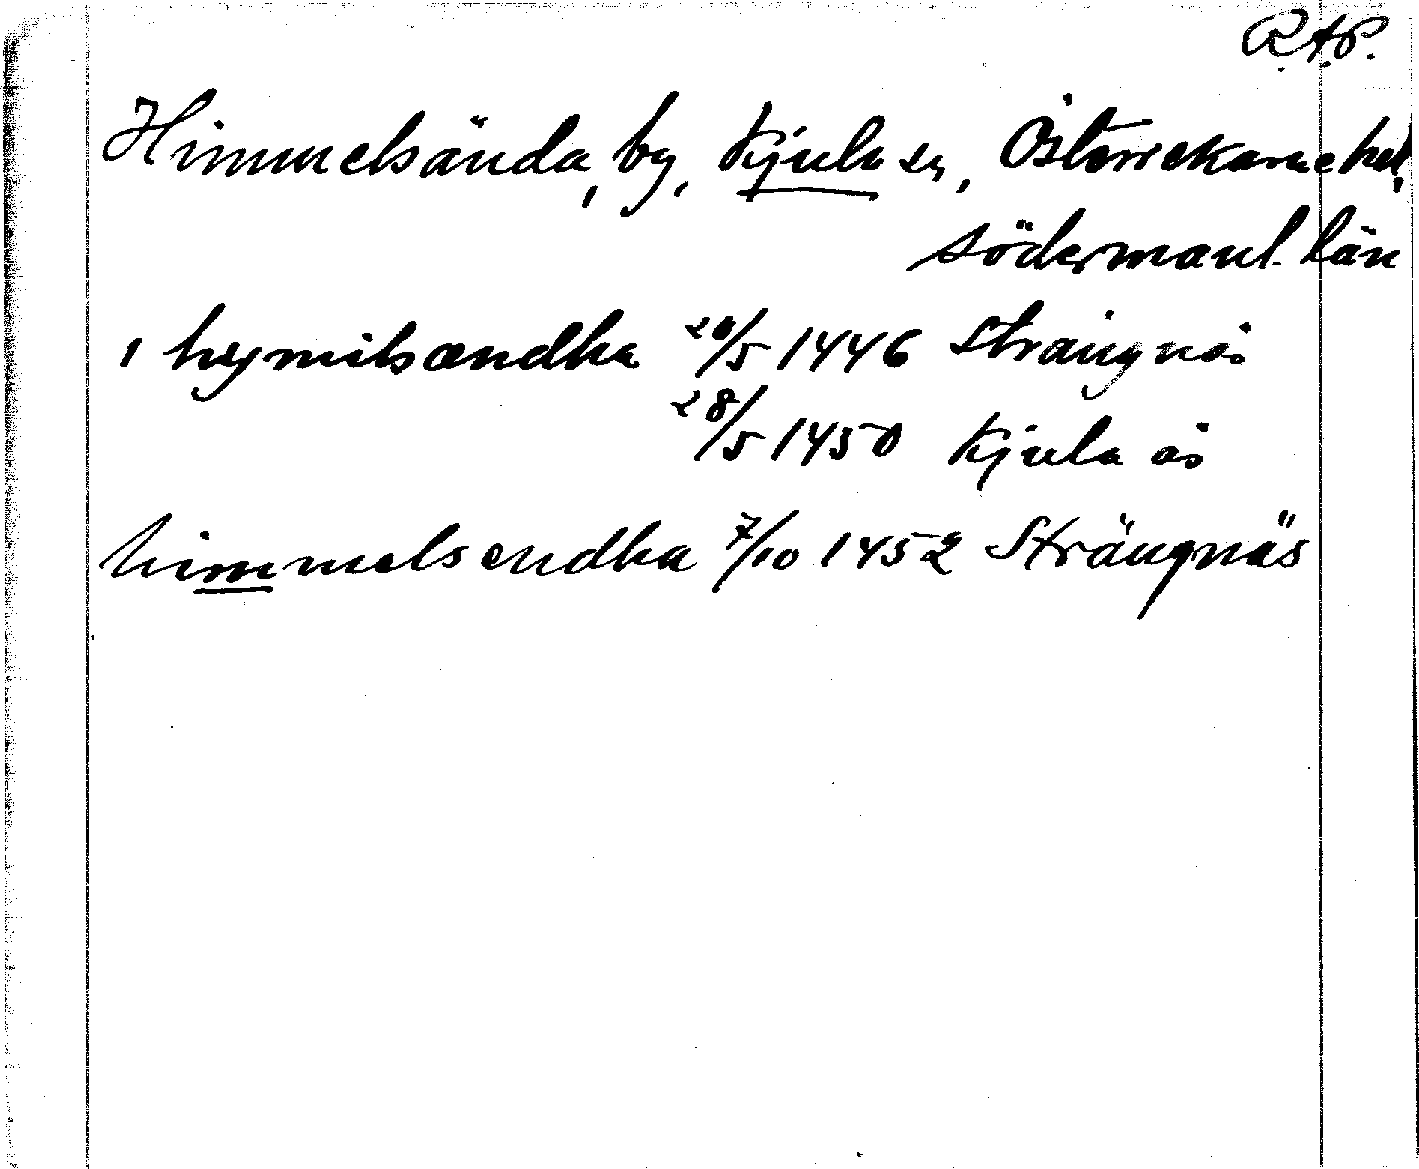 R.A.P.
Himmelsända, by, Kjula sn, Österrekarne hd,
Södermanl. län
i hymilsændha 26/5 1446 Strängnäs
28/5 1450 Kjula ås
himmelsendha 7/10 1452 Strängnäs